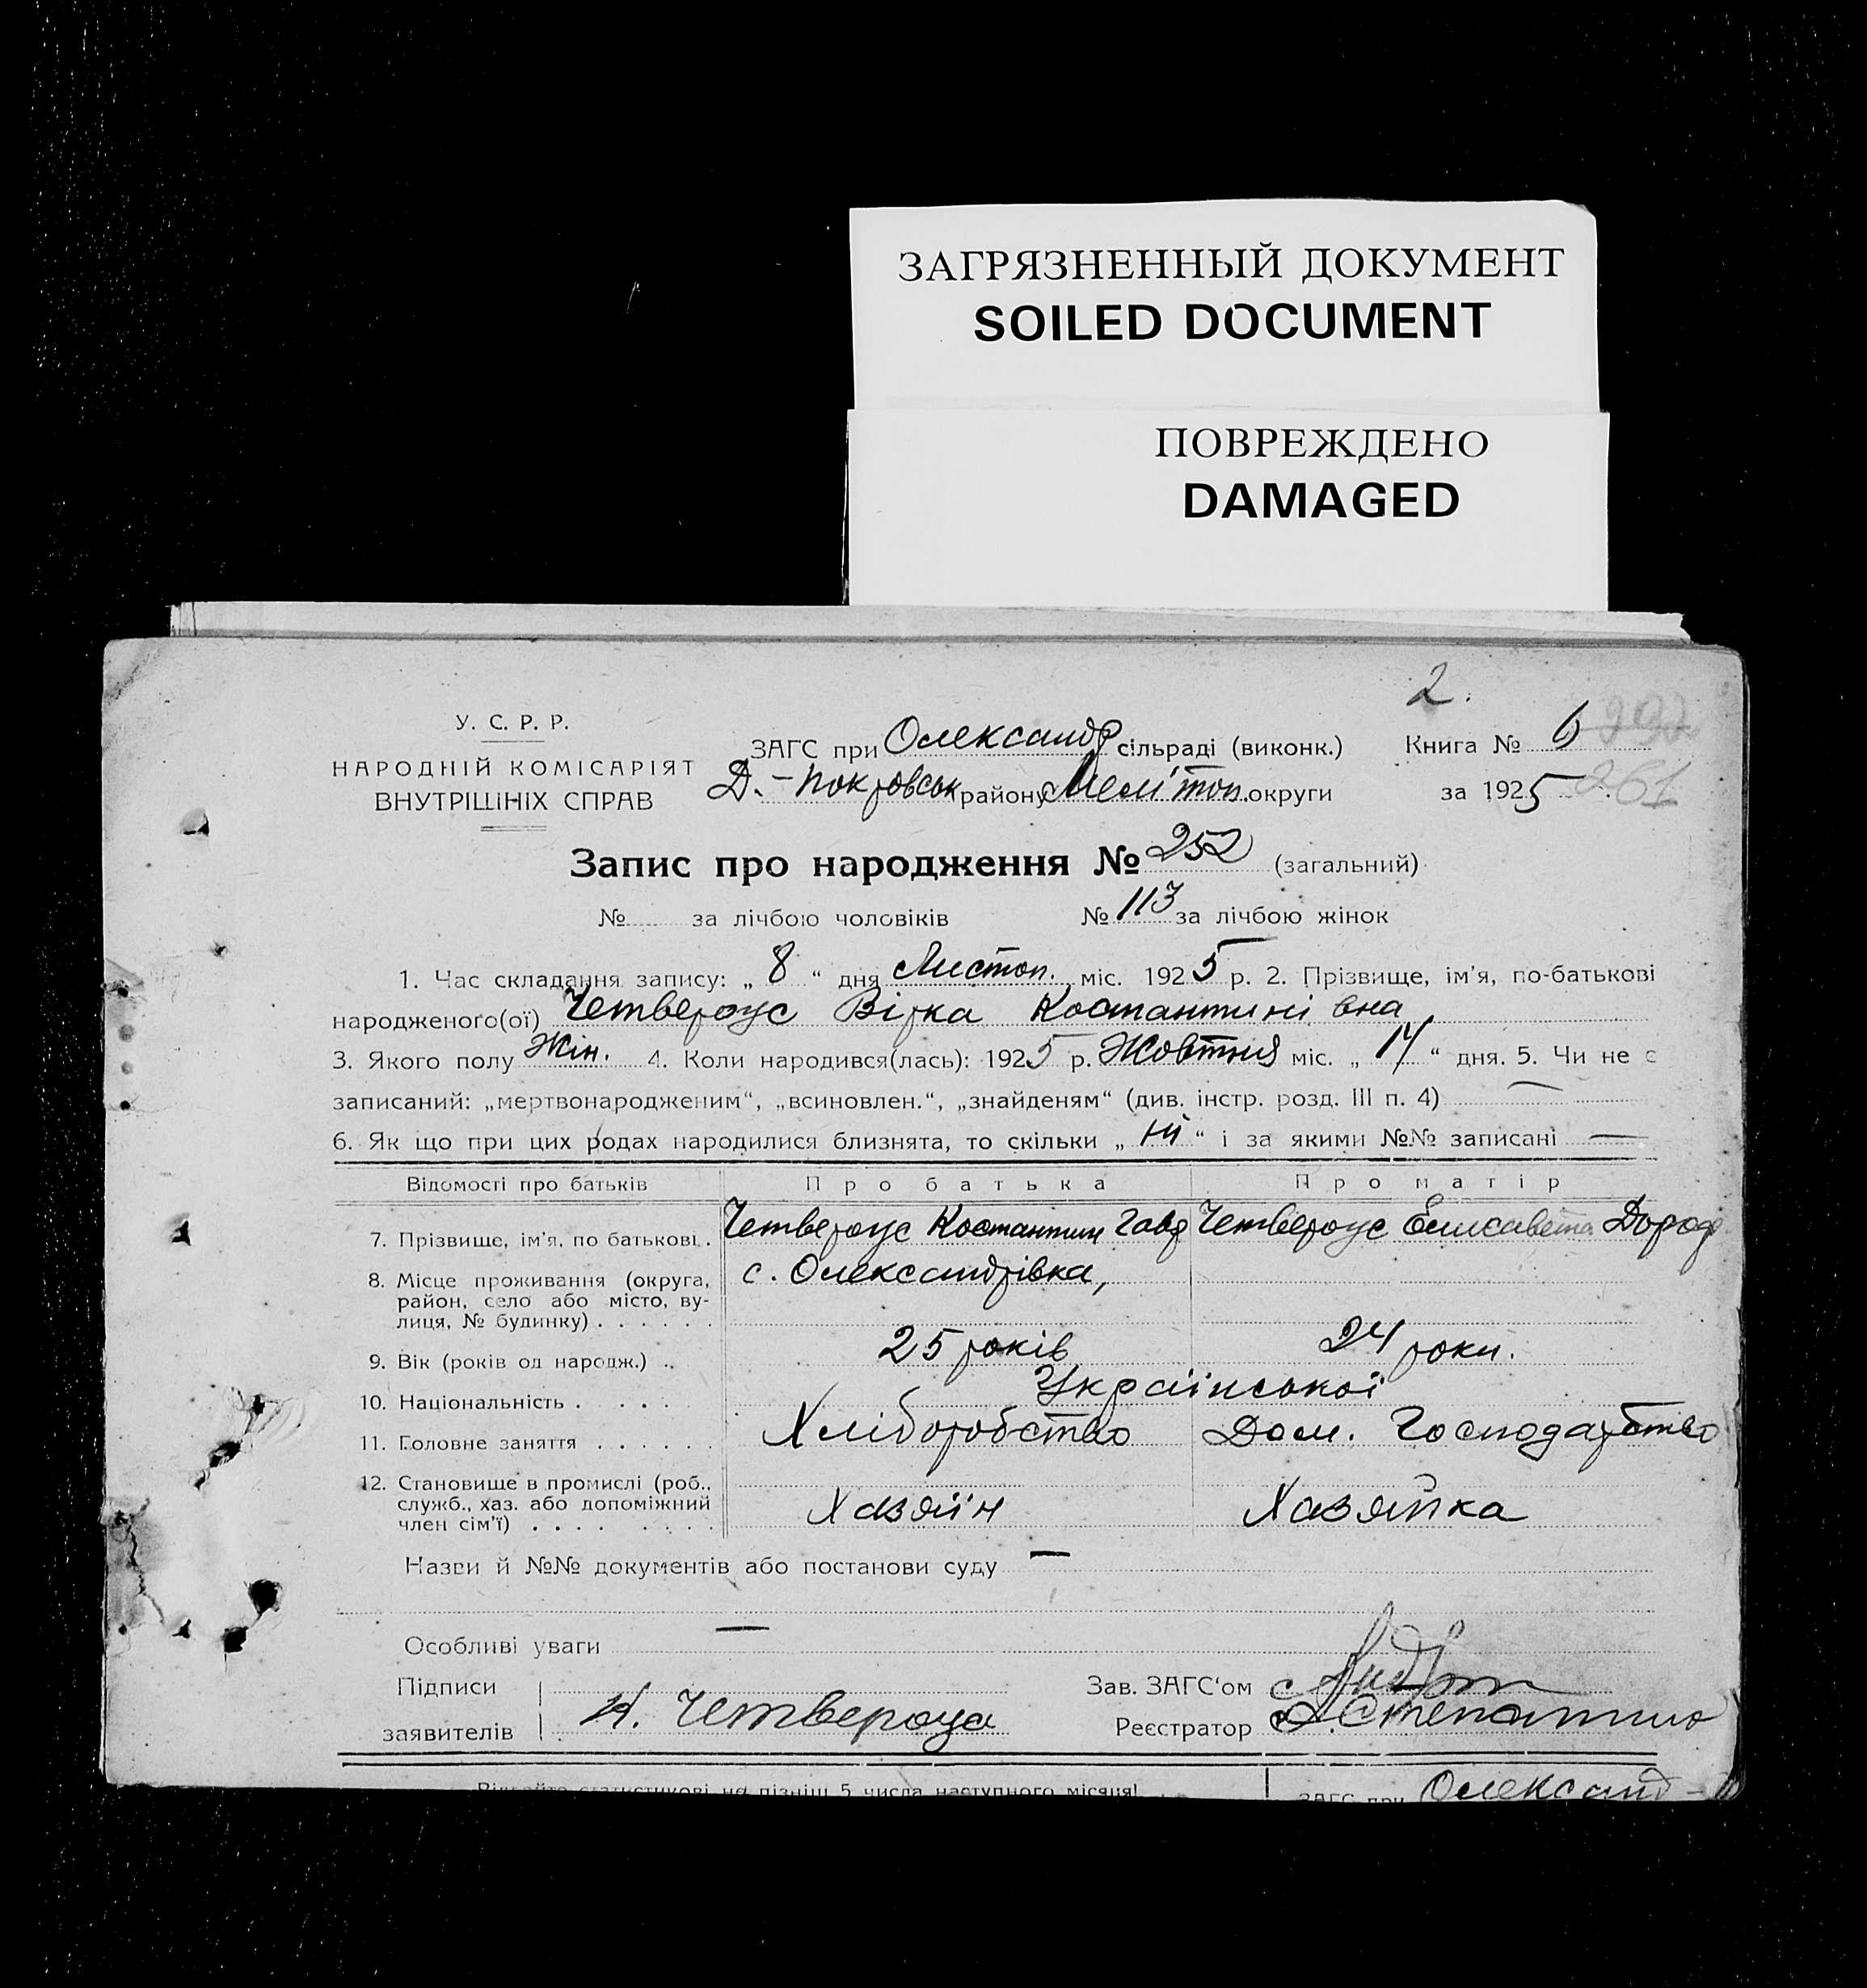 ЗАГРЯЗНЕННЫЙ ДОКУМЕНТ
SOILED DOCUMENT
ПОВРЕЖДЕНО
DAMAGED
2.
У. С. Р. Р.
НАРОДНІЙ КОМІСАРІЯТ
ВНУТРІШНІХ СПРАВ
ЗАГС при Олександр сільраді (виконк.) Книга № 6
Д.-Покровськ району Меліт оп. округи за 1925 261
Запис про народження № 252 (загальний)
№ за лічбою чоловіків № 113 за лічбою жінок
1. Час складання запису: „ 8 “ дня Листоп. міс. 1925 р. 2. Прізвище, ім'я, по-батькові
народженого(ої) Четвероус Вірка Костантинівна
3. Якого полу Жін. 4. Коли народився(лась): 1925 р. Жовтня міс. „ 14 “ дня. 5. Чи не є
записаний: „мертвонародженим“, „всиновлен.“, „знайденям“ (див. інстр. розд. III п. 4) —
6. Як що при цих родах народилися близнята, то скільки „ ні “ і за якими №№ записані —
Відомості про батьків Про батька Про матір
7. Прізвище, ім'я, по батькові . Четвероус Костантин Четвероус Елисавета
8. Місце проживання (округа, с. Олександрівка,
район, село або місто, ву-
лиця, № будинку) . . . . . .
9. Вік (років од народж.) . . 25 років 24 роки.
10. Національність . . . . . Української
11. Головне заняття . . . . . . Хліборобство Дом. Господарство
12. Становище в промислі (роб.,
служб., хаз. або допоміжний Хазяїн Хазяйка
член сім'ї) . . . . . . . .
Назви й №№ документів або постанови суду —
Особливі уваги —
Підписи Зав. ЗАГС'ом
заявителів Четвероус Реєстратор
Відсилайте статистикові не пізніш 5 числа наступного місяця!
ЗАГС при Олександ-